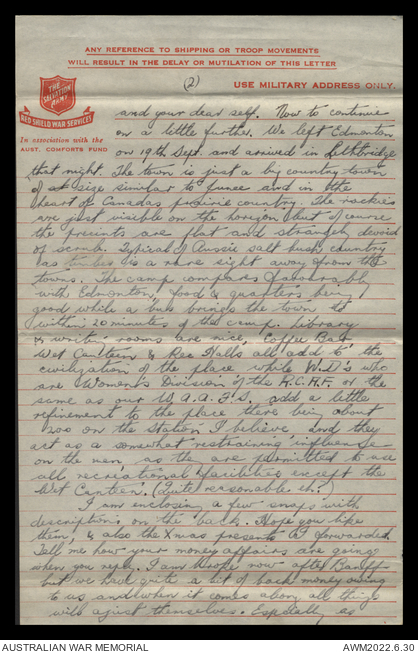 ANY REFERENCE TO SHIPPING OR TROOP MOVEMENTS
WILL RESULT IN THE DELAY OR MUTILATION OF THIS LETTER
THE
SALVATION
ARMY
RED SHIELD WAR SERVICES
In association with the
AUST. COMFORTS FUND
(2)
USE MILITARY ADDRESS ONLY.
and your dear self. Now to continue
on a little further. We left Edmonton
on 19th Sept. and arrived in Lethbridge
that night. The town is just a big country town
of size similar to and in the
heart of Canadas prairie country. The rockies
are just visible on the horizon but of course
the precints are flat and strangely devoid
of scrub. Typical of Aussie salt bush country
as is a rare sight away from the
towns. The camp compares favourably
with Edmonton, food & quarters being
good while a bus brings the town to
within 20 minutes of the camp. Library
& writin' rooms are nice, Coffee Bar
Wet Canteen & Rec Halls all add to the
civilization of the place while W.D's who
are Women's Division of the R.C.A.F. or the
same as our W.A.A.F's, add a little
refinement to the place there being about
200 on the station I believe and they
act as a somewhat restraining influence
on the men as the are permitted to use
all recreational facilities except the
Wet Canteen. (Quite reasonable eh.)
I am enclosing a few snaps with
descriptions on the back. Hope you like
them, & also the Xmas presents I forwarded.
Tell me how your money affairs are going
when you reply. I am broke now after Banff
but we have quite a bit of back money owing
to us and when it comes along all things
will ajust themselves. Especially as
AUSTRALIAN WAR MEMORIAL
AWM2022.6.38